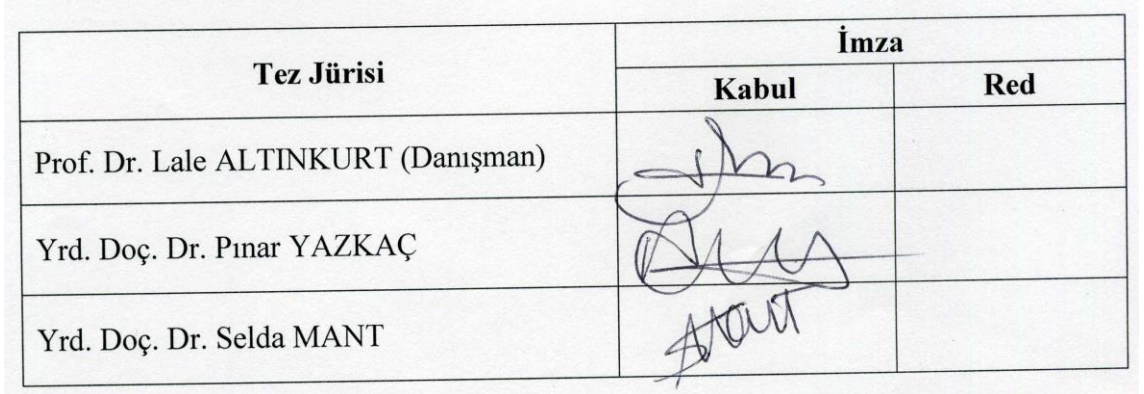 Tez Jürisi
İmza
Kabul
Red
Prof. Dr. Lale ALTINKURT (Danışman)
Yrd. Doç. Dr. Pınar YAZKAÇ
Yrd. Doç. Dr. Selda MANT